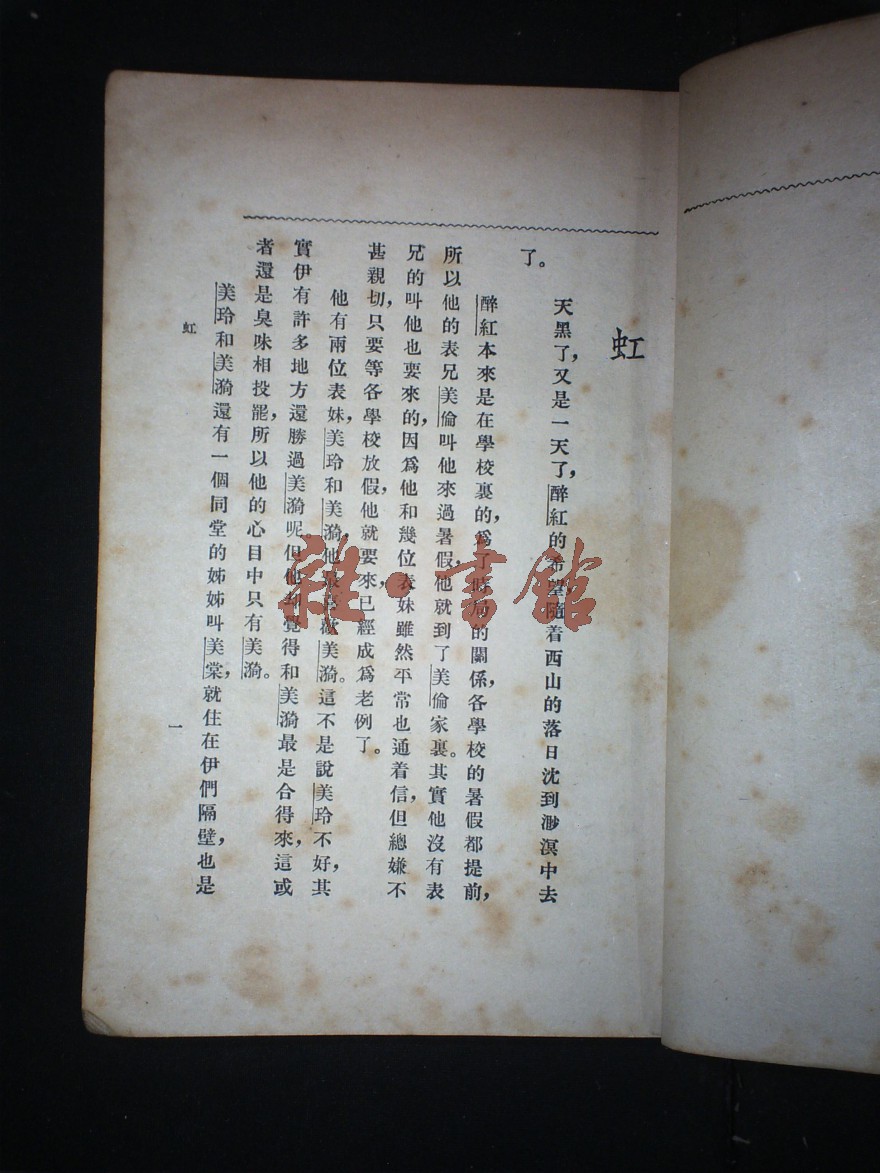 虹
天黑了，又是一天了，醉紅的希望隨着西山的落日沈到渺溟中去
了。
醉紅本來是在學校裏的，爲了時局的關係，各學校的暑假都提前，
所以他的表兄美倫叫他來過暑假，他就到了美倫家裏。其實他沒有表
兄的叫他也要來的，因爲他和幾位表妹雖然平常也通着信，但總嫌不
甚親切，只要等各學校放假，他就要來，已經成爲老例了。
他有兩位表妹，美玲和美漪，他最喜歡美漪。這不是說美玲不好，其
實伊有許多地方還勝過美漪呢，但他却覺得和美漪最是合得來，這或
者還是臭味相投罷，所以他的心目中只有美漪。
美玲和美漪還有一個同堂的姊姊叫美棠，就住在伊們隔壁，也是
虹
一
雜·書館